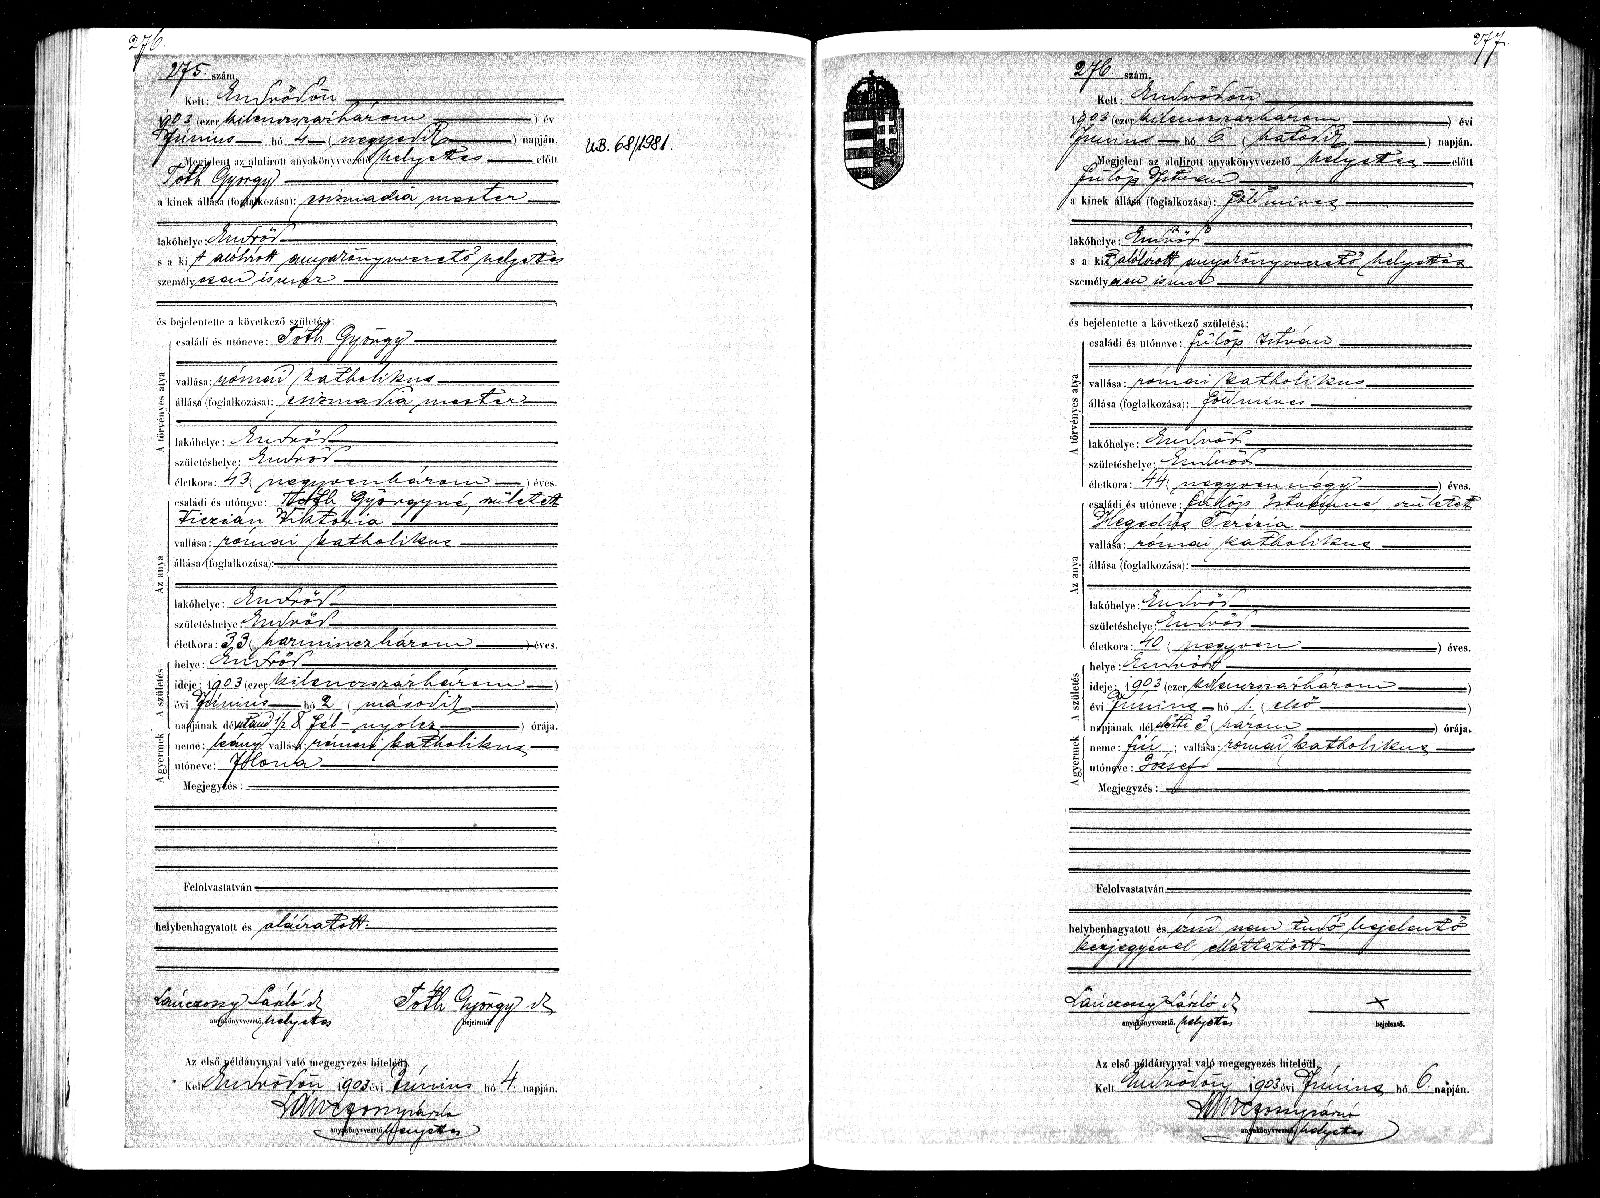 276
275. szám.
Kelt: Endrődön
1903 (ezer kilenczszázhárom) év
Június hó 4 (negyedik) napján.
Megjelent az alulirott anyakönyvvezető helyettes előtt
Tóth György
a kinek állása (foglalkozása): csizmadia mester
lakóhelye: Endrőd
s a kit alólirott anyakönyvvezető helyettes
személyesen ismer
és bejelentette a következő születést:
A törvényes atya
családi és utóneve: Tóth György
vallása: római katholikus
állása (foglalkozása): csizmadia mester
lakóhelye: Endrőd
születéshelye: Endrőd
életkora: 43 (negyvenhárom) éves.
Az anya
családi és utóneve: Tóth Györgyné, született
Viczián Viktória
vallása: római katholikus
állása (foglalkozása):
lakóhelye: Endrőd
születéshelye: Endrőd
életkora: 33 (harminczhárom) éves.
A születés
helye: Endrőd
ideje: 1903 (ezer kilenczszázhárom)
évi Június hó 2 (második)
napjának délután 1/2 8 (fél-nyolcz) órája.
A gyermek
neme: leány vallása: római katholikus
utóneve: Ilona
Megjegyzés:
Felolvastatván
helybenhagyatott és aláiratott.
Lánczossy László sk
anyakönyvvezető helyettes
Tóth György sk
bejelentő.
Az első példánynyal való megegyezés hiteléül.
Kelt Endrődön 1903 évi Június hó 4. napján.
anyakönyvvezető helyettes
U.B. 68/1981.
277.
276 szám.
Kelt: Endrődön
1903 (ezer kilenczszázhárom) évi
Június hó 6 (hatodik) napján.
Megjelent az alulirott anyakönyvvezető helyettes előtt
Fülöp István
a kinek állása (foglalkozása): földmives
lakóhelye: Endrőd
s a kit alólirott anyakönyvvezető helyettes
személyesen ismer
és bejelentette a következő születést:
A törvényes atya
családi és utóneve: Fülöp István
vallása: római katholikus
állása (foglalkozása): földmives
lakóhelye: Endrőd
születéshelye: Endrőd
életkora: 44 (negyvennégy) éves.
Az anya
családi és utóneve: Fülöp Istvánné született
Hegedűs Terézia
vallása: római katholikus
állása (foglalkozása):
lakóhelye: Endrőd
születéshelye: Endrőd
életkora: 40 (negyven) éves.
A születés
helye: Endrőd
ideje: 1903 (ezer kilenczszázhárom)
évi Június hó 1. (első)
napjának délelőtti 3 (három) órája.
A gyermek
neme: fiú; vallása: római katholikus
utóneve: József
Megjegyzés:
Felolvastatván
helybenhagyatott és írni nem tudó bejelentő
kézjegyével elláttatott
Lánczossy László sk
anyakönyvvezető. helyettes
x
bejelentő.
Az első példánynyal való megegyezés hiteléül.
Kelt Endrődön 1903 évi Június hó 6. napján.
anyakönyvvezető helyettes